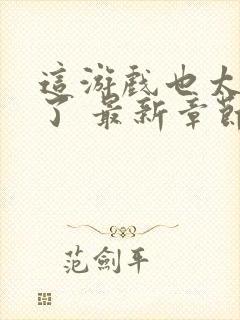 這游戲也太
了 最新章節
范劍平